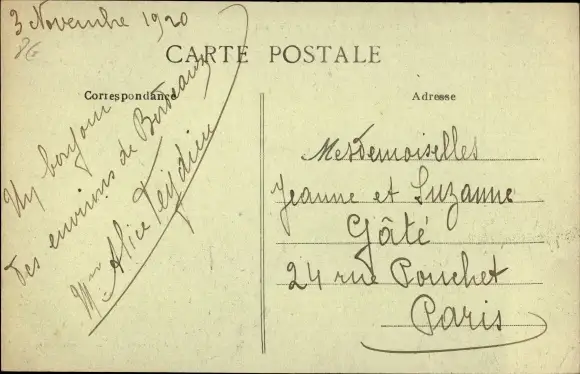 3 Novembre 1920
CARTE POSTALE
Correspondance
Un bonjour
des environs de Bordeaux
Mme Alice
Adresse
Mesdemoiselles
Jeanne et Suzanne
Gâté
24 rue Pouchet
Paris